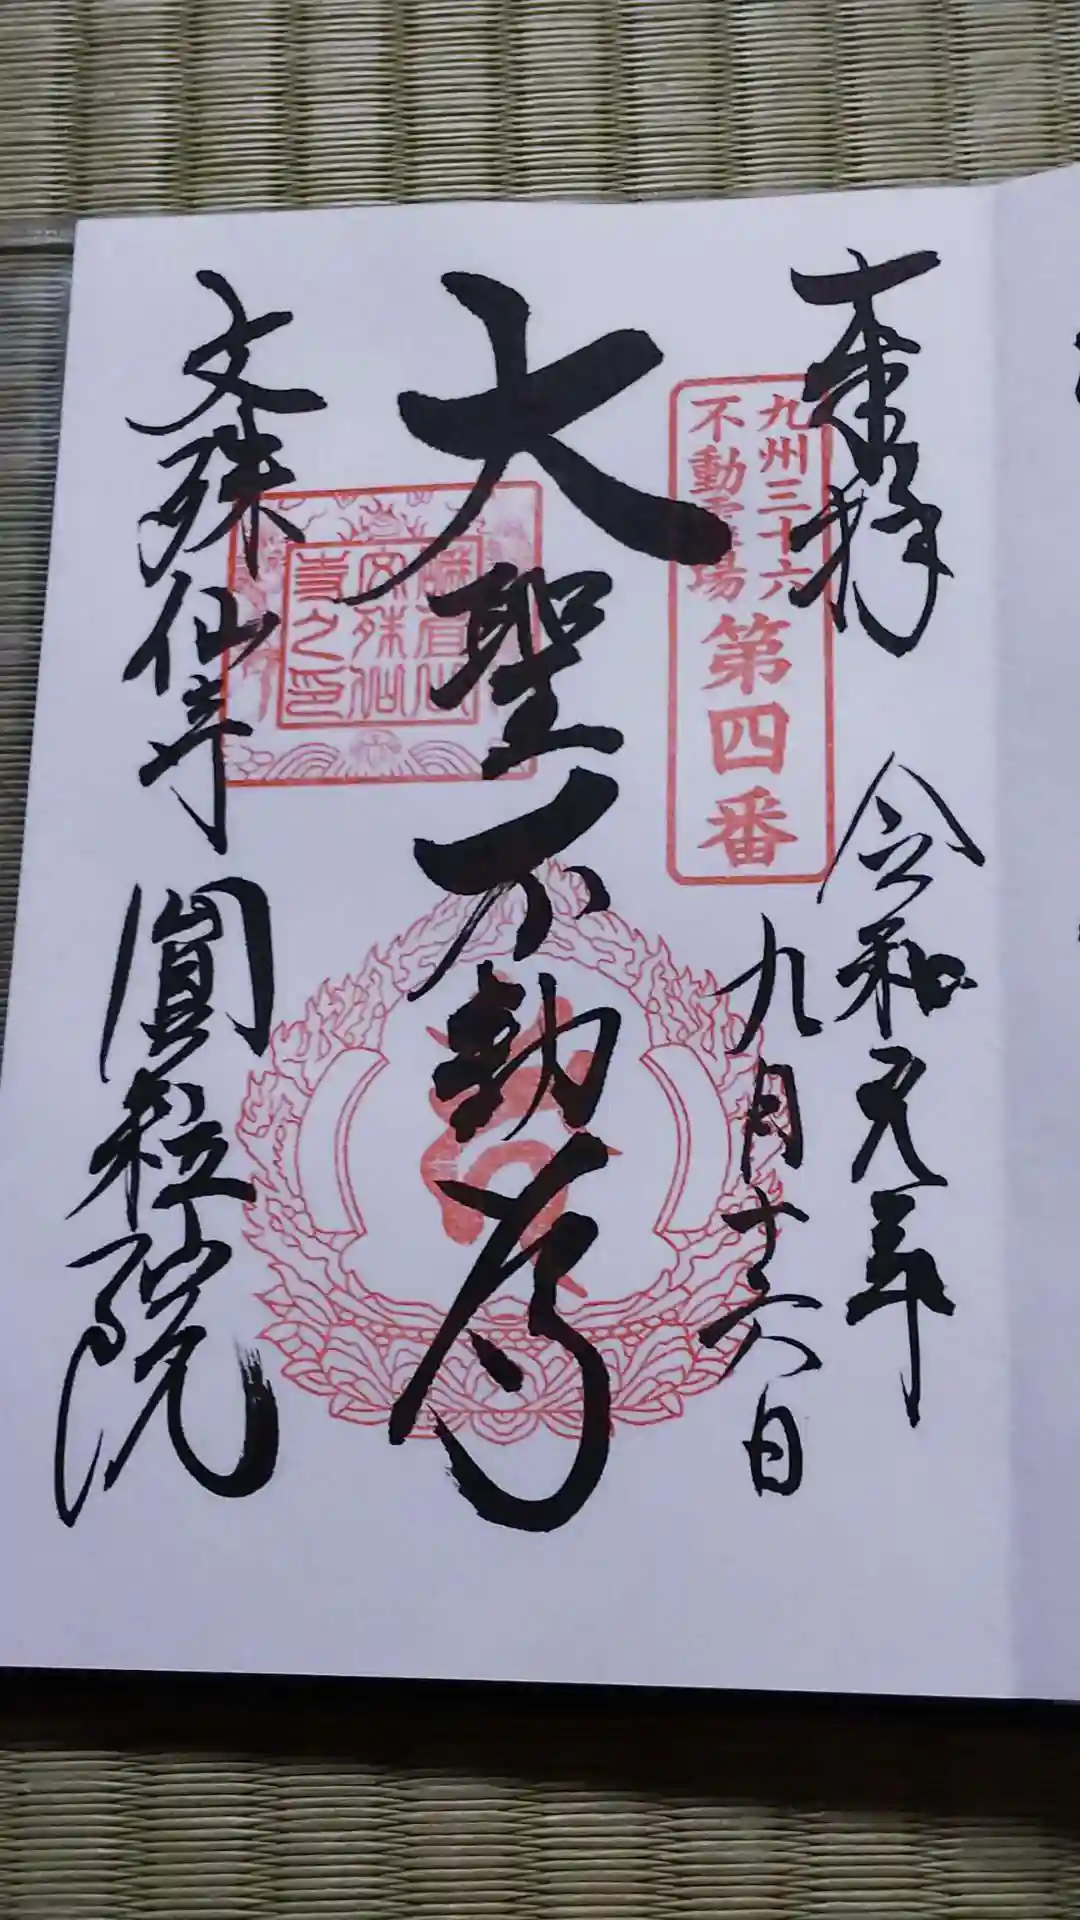 奉拝
九州三十六
不動霊場
第四番
令和元年
九月十六日
大聖不動尊
文殊仙寺
圓粒院
文殊仙
寺之印